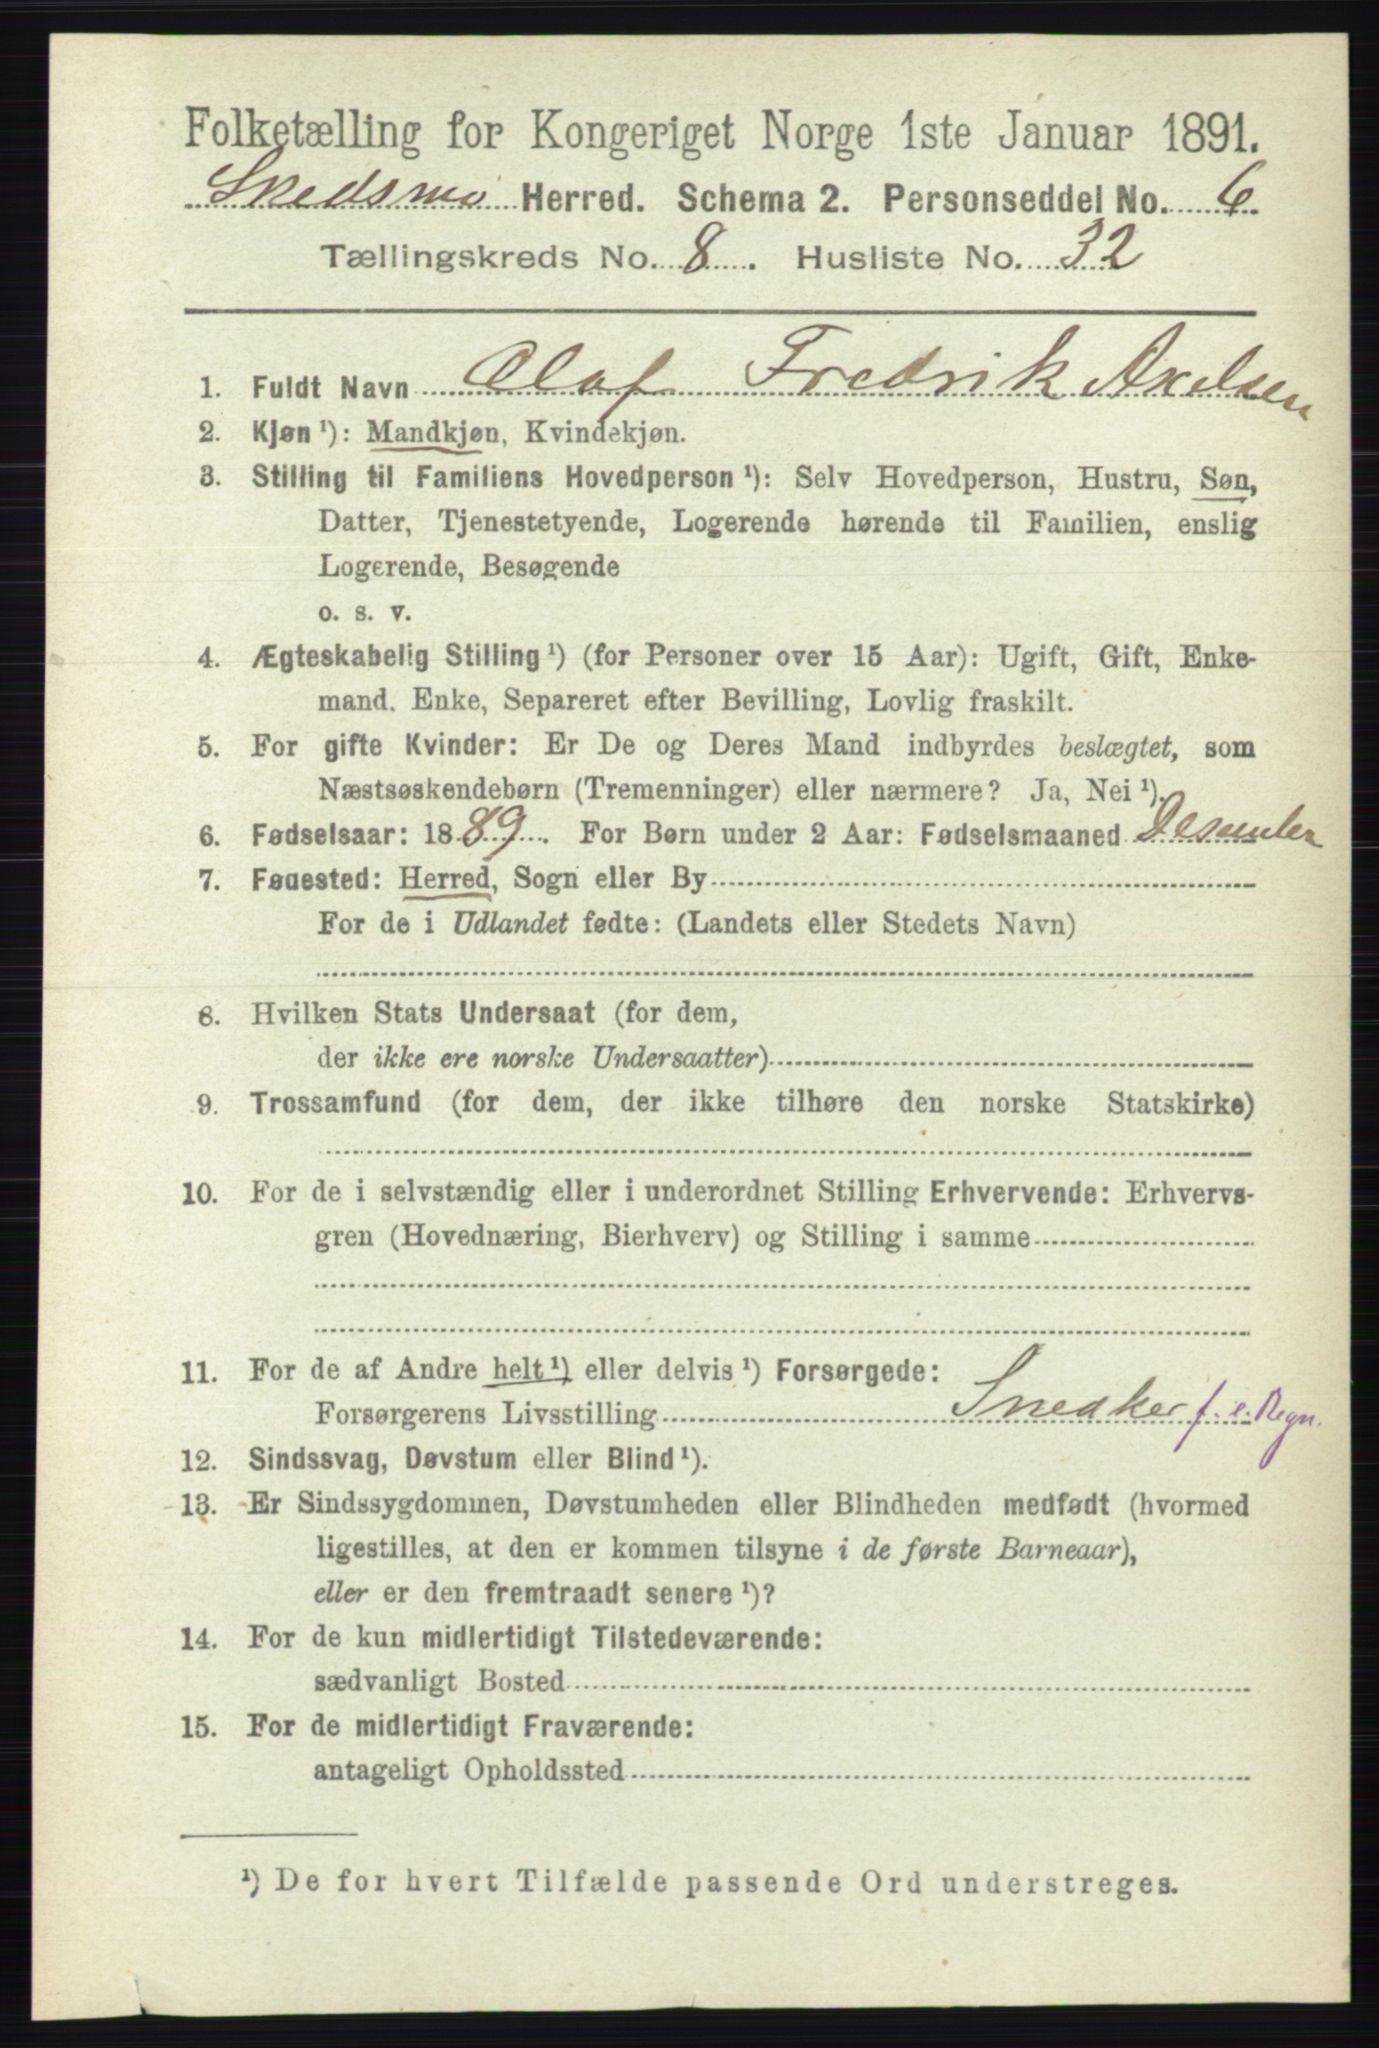 Folketælling for Kongeriget Norge 1ste Januar 1891.
Skedsmo Herred. Schema 2. Personseddel No. 6
Tællingskreds No. 8. Husliste No. 32
1. Fuldt Navn Olaf Fredrik Axelsen
2. Kjøn ¹): Mandkjøn, Kvindekjøn.
3. Stilling til Familiens Hovedperson ¹): Selv Hovedperson, Hustru, Søn,
Datter, Tjenestetyende, Logerende hørende til Familien, enslig
Logerende, Besøgende
o. s. v.
4. Ægteskabelig Stilling ¹) (for Personer over 15 Aar): Ugift, Gift, Enke-
mand, Enke, Separeret efter Bevilling, Lovlig fraskilt.
5. For gifte Kvinder: Er De og Deres Mand indbyrdes beslægtet, som
Næstsøskendebørn (Tremenninger) eller nærmere? Ja, Nei ¹).
6. Fødselsaar: 1889. For Børn under 2 Aar: Fødselsmaaned Desember
7. Fødested: Herred, Sogn eller By
For de i Udlandet fødte: (Landets eller Stedets Navn)
8. Hvilken Stats Undersaat (for dem,
der ikke ere norske Undersaatter)
9. Trossamfund (for dem, der ikke tilhøre den norske Statskirke)
10. For de i selvstændig eller i underordnet Stilling Erhvervende: Erhvervs-
gren (Hovednæring, Bierhverv) og Stilling i samme
11. For de af Andre helt ¹) eller delvis ¹) Forsørgede:
Forsørgerens Livsstilling Snedker f. e. Regn.
12. Sindssvag, Døvstum eller Blind ¹).
13. Er Sindssygdommen, Døvstumheden eller Blindheden medfødt (hvormed
ligestilles, at den er kommen tilsyne i de første Barneaar),
eller er den fremtraadt senere ¹)?
14. For de kun midlertidigt Tilstedeværende:
sædvanligt Bosted
15. For de midlertidigt Fraværende:
antageligt Opholdssted
¹) De for hvert Tilfælde passende Ord understreges.